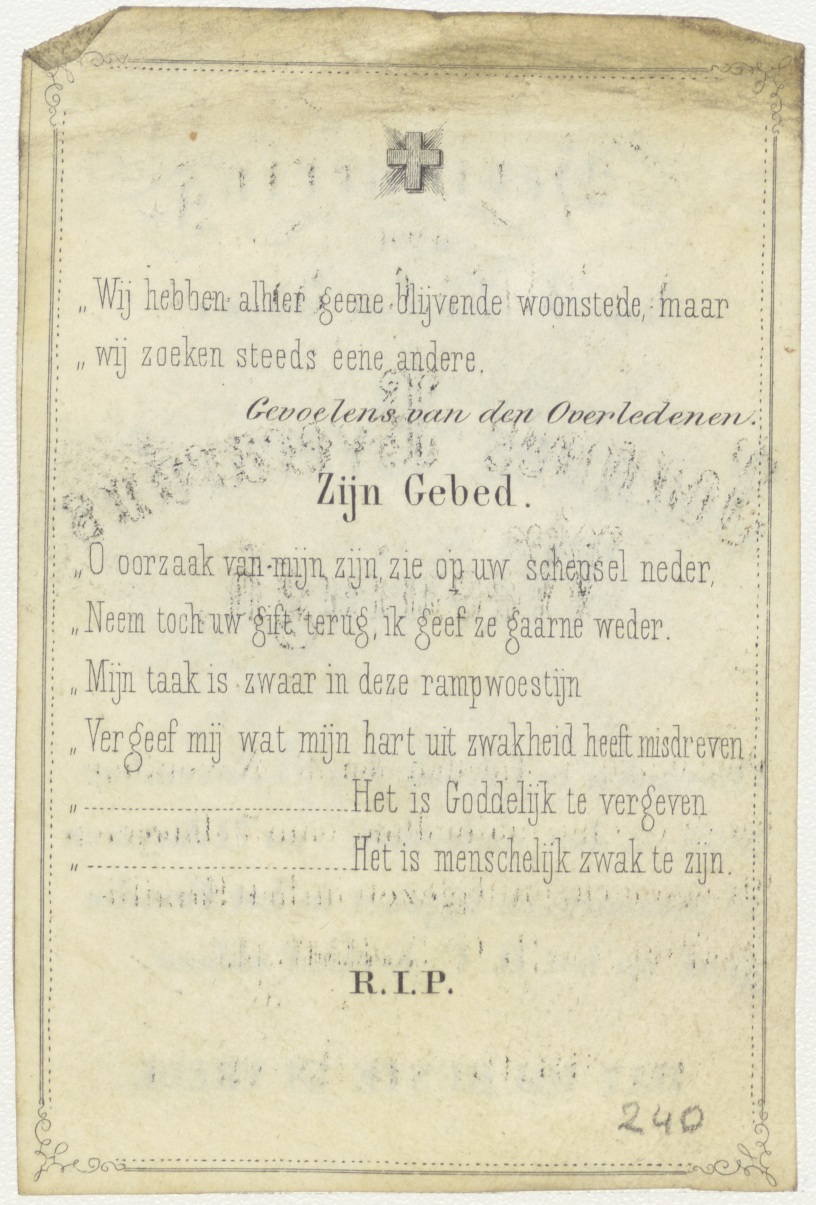 „Wij hebben alhier geene blijvende woonstede, maar
„wij zoeken steeds eene andere.
Gevoelens van den Overledenen.
Zijn Gebed.
„O oorzaak van mijn zijn, zie op uw schepsel neder,
„Neem toch uw gift terug, ik geef ze gaarne weder.
„Mijn taak is zwaar in deze rampwoestijn
„Vergeef mij wat mijn hart uit zwakheid heeft misdreven
„..............................Het is Goddelijk te vergeven
„..............................Het is menschelijk zwak te zijn.
R.I.P.
240